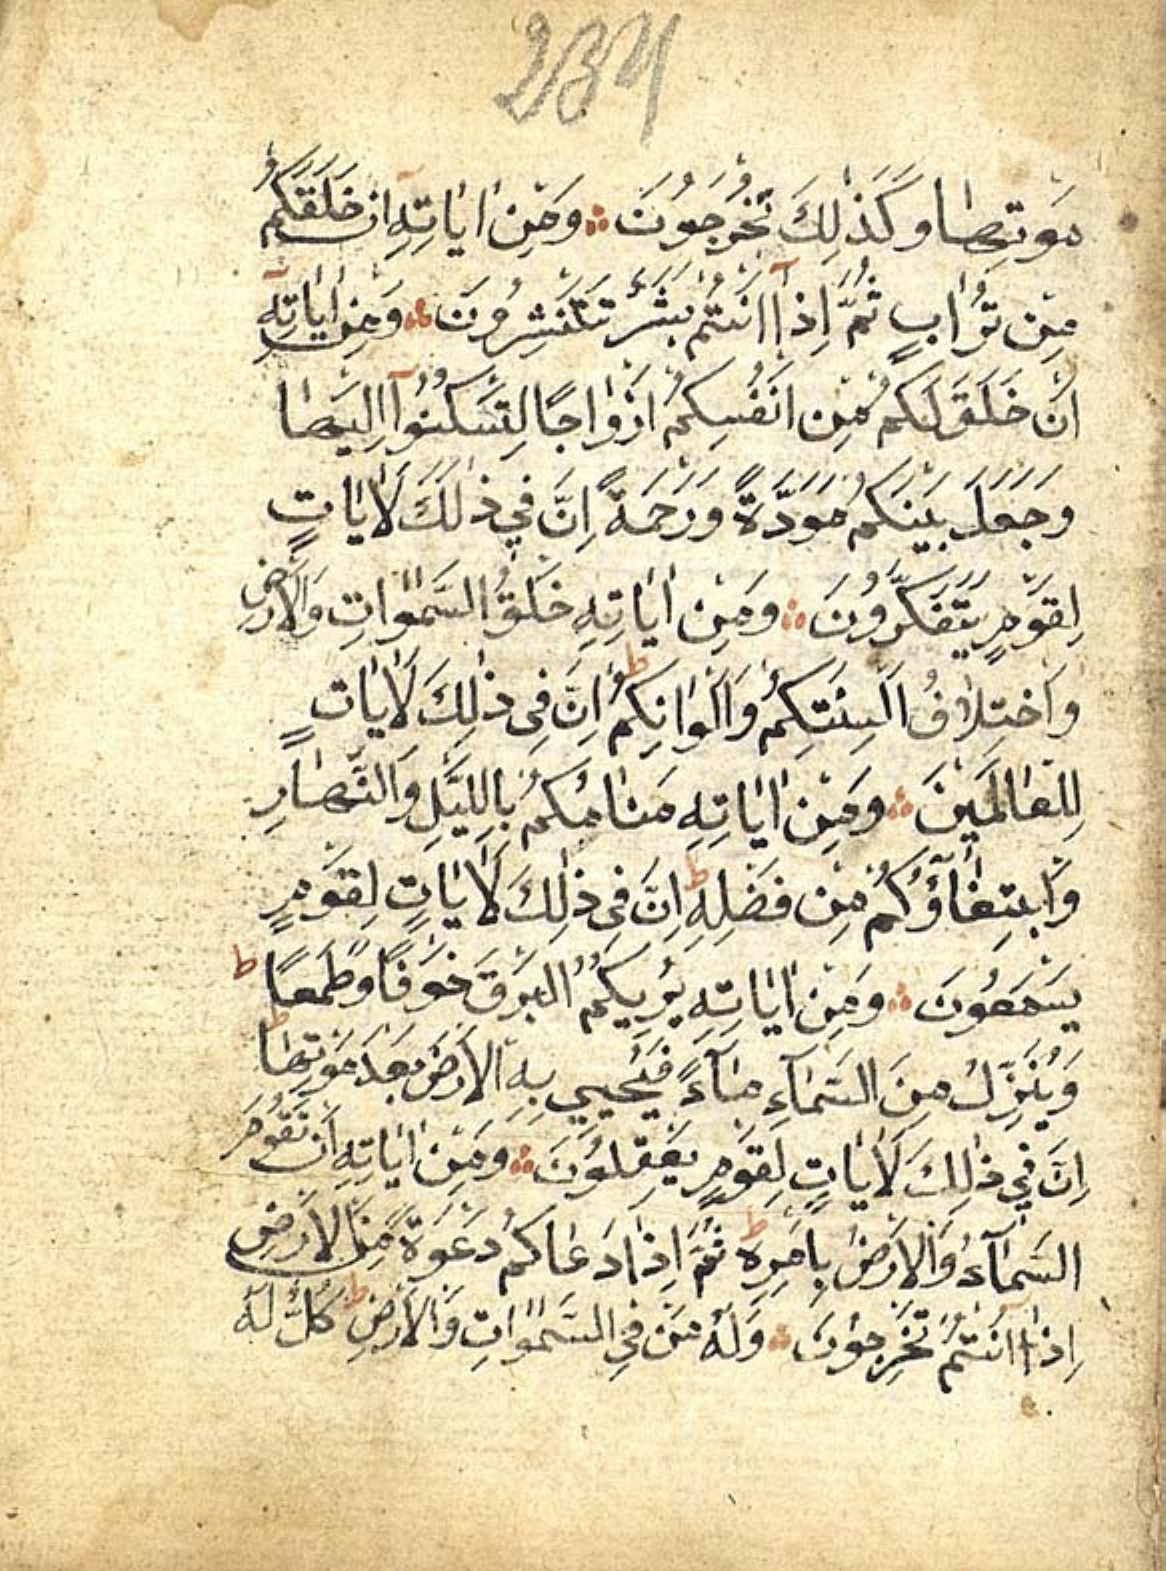 234
مَوْتِهَا وَكَذٰلِكَ تُخْرَجُونَ ۞ وَمِنْ اٰيَاتِهِ اَنْ خَلَقَكُمْ
مِنْ تُرَابٍ ثُمَّ اِذَٓا اَنْتُمْ بَشَرٌ تَنْتَشِرُونَ ۞ وَمِنْ اٰيَاتِهِ
اَنْ خَلَقَ لَكُمْ مِنْ اَنْفُسِكُمْ اَزْوَاجًا لِتَسْكُنُوٓا اِلَيْهَا
وَجَعَلَ بَيْنَكُمْ مَوَدَّةً وَرَحْمَةً اِنَّ فِي ذٰلِكَ لَاٰيَاتٍ
لِقَوْمٍ يَتَفَكَّرُونَ ۞ وَمِنْ اٰيَاتِهِ خَلْقُ السَّمٰوَاتِ وَالْاَرْضِ
وَاخْتِلَافُ اَلْسِنَتِكُمْ وَاَلْوَانِكُمْ ط اِنَّ فِى ذٰلِكَ لَاٰيَاتٍ
لِلْعَالَمِينَ ۞ وَمِنْ اٰيَاتِهِ مَنَامُكُمْ بِالَّيْلِ وَالنَّهَارِ
وَابْتِغَاؤُكُمْ مِنْ فَضْلِهِ ط اِنَّ فِى ذٰلِكَ لَاٰيَاتٍ لِقَوْمٍ
يَسْمَعُونَ ۞ وَمِنْ اٰيَاتِهِ يُرِيكُمُ الْبَرْقَ خَوْفًا وَطَمَعًا ط
وَيُنَزِّلُ مِنَ السَّمَآءِ مَآءً فَيُحْيِي بِهِ الْاَرْضَ بَعْدَ مَوْتِهَا ط
اِنَّ فِي ذٰلِكَ لَاٰيَاتٍ لِقَوْمٍ يَعْقِلُونَ ۞ وَمِنْ اٰيَاتِهِ اَنْ تَقُومَ
السَّمَآءُ وَالْاَرْضُ بِاَمْرِهِ ط ثُمَّ اِذَا دَعَاكُمْ دَعْوَةً مِنَ الْاَرْضِ
اِذَٓا اَنْتُمْ تَخْرُجُونَ ۞ وَلَهُ مَنْ فِي السَّمٰوَاتِ وَالْاَرْضِ ط كُلٌّ لَهُ